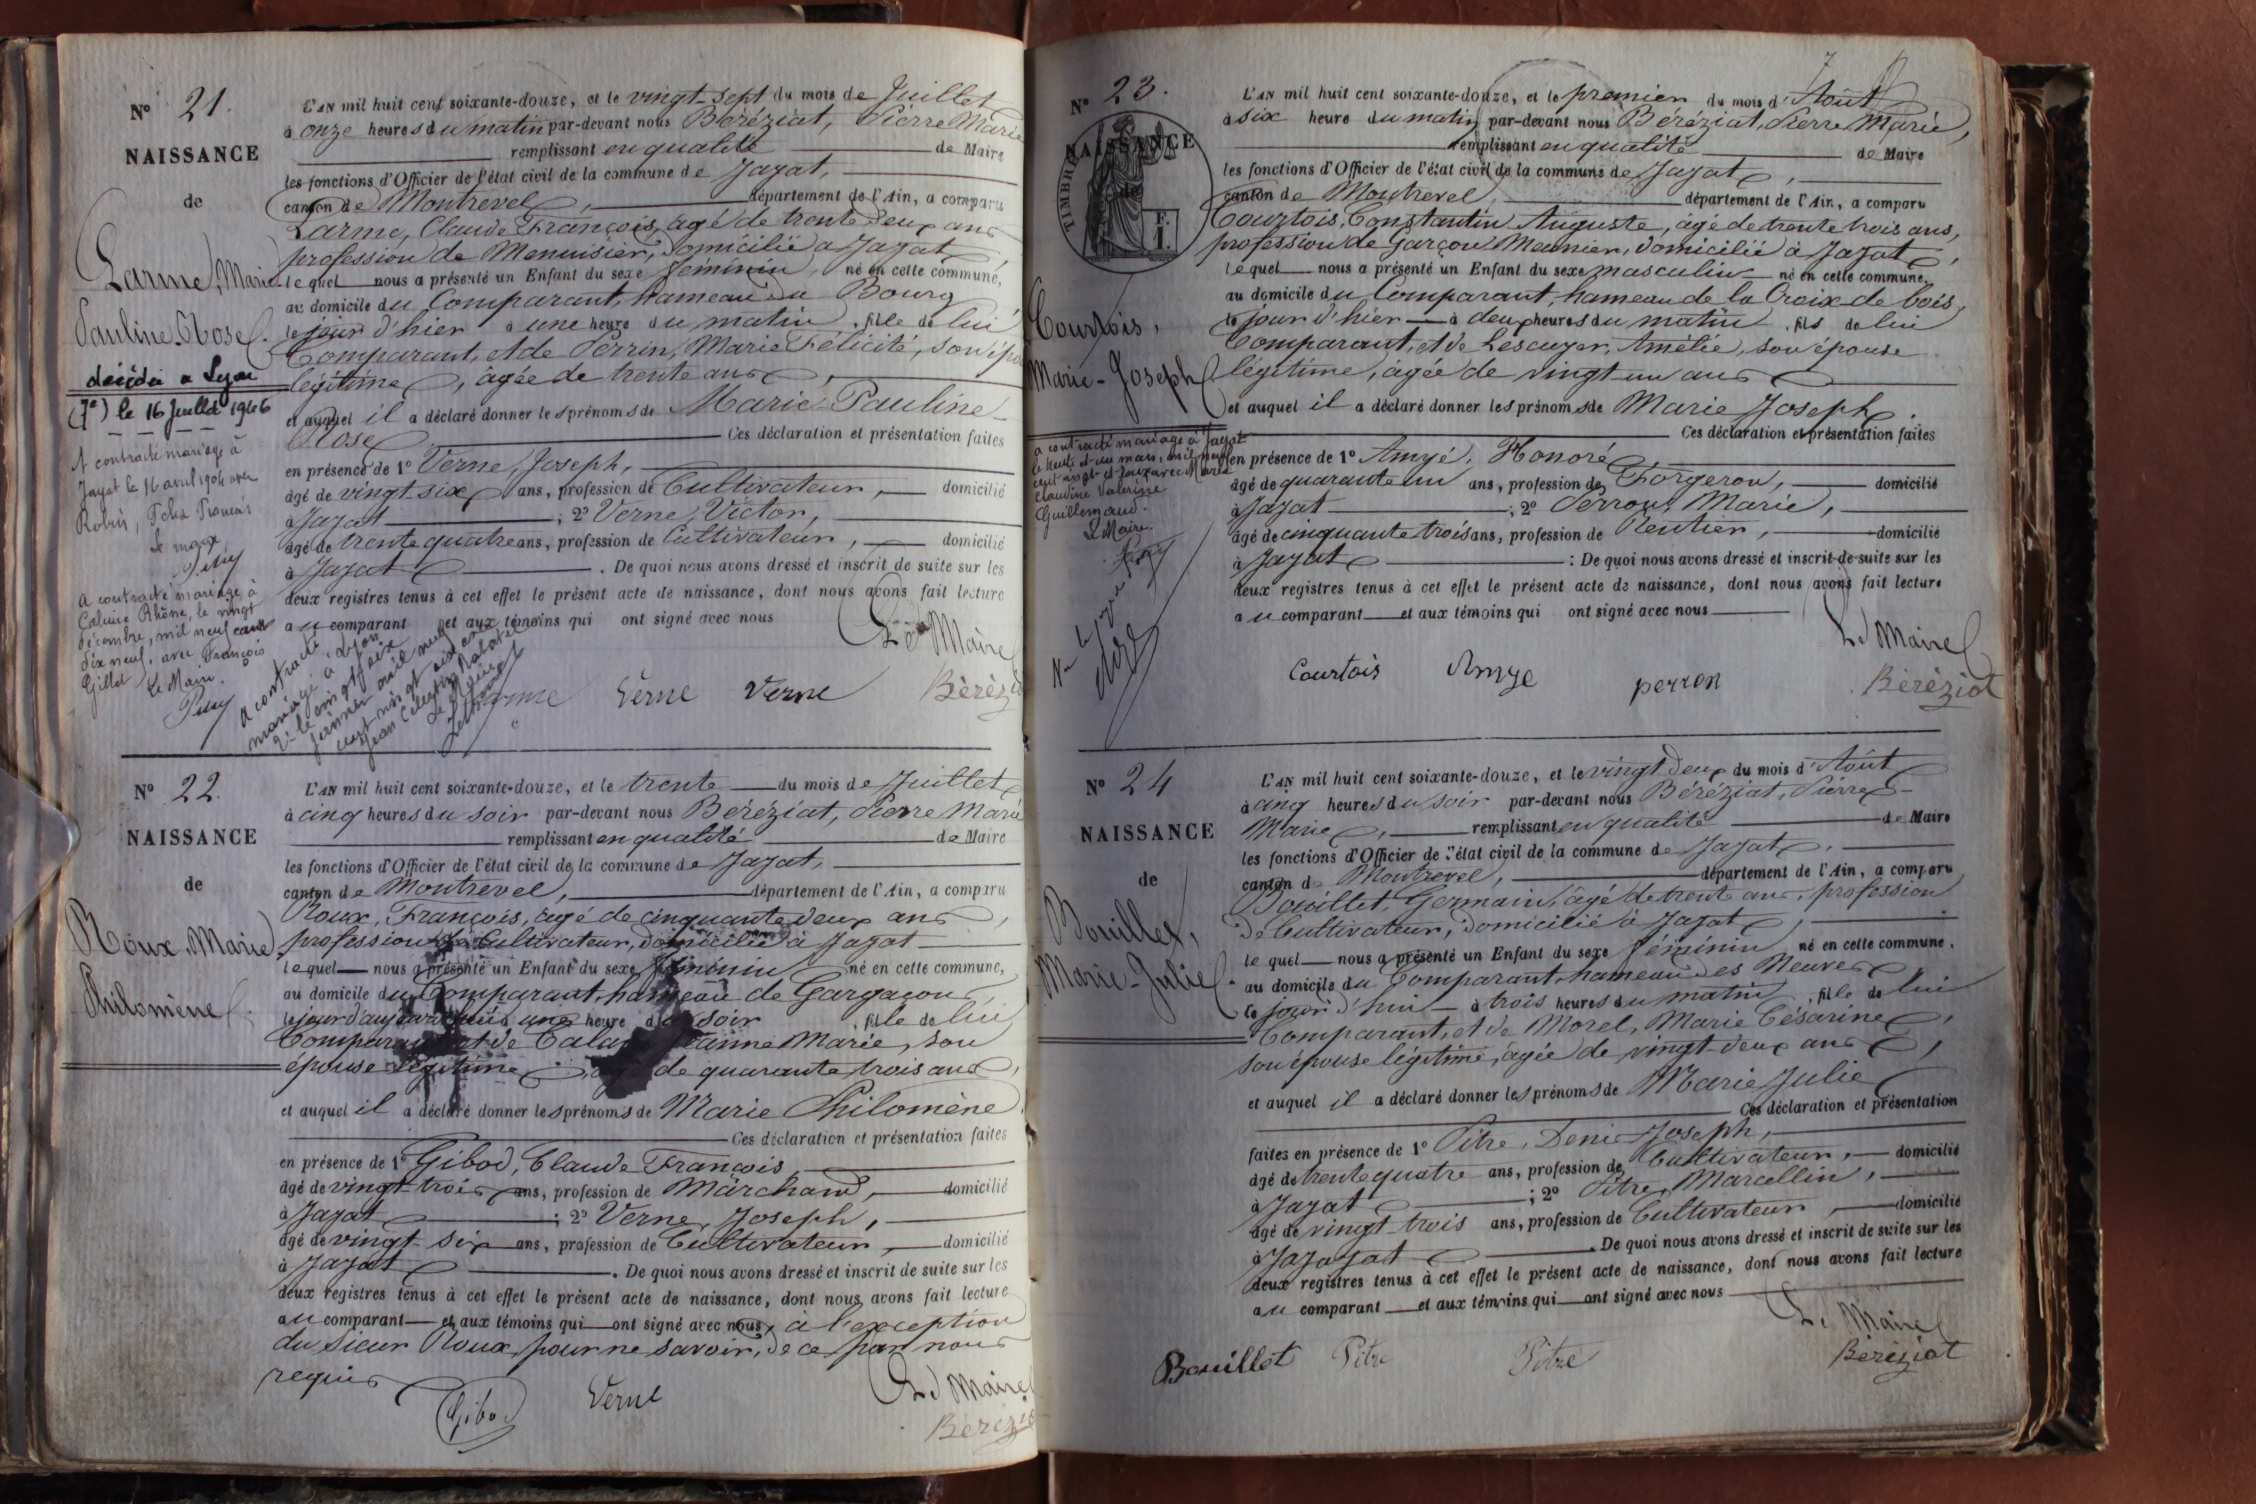 N° 21.
NAISSANCE
de
Larme, Marie
Pauline Rose.
décédée a Lyon
(7e) le 16 Juillet 1946
A contracté mariage à
Jayat le 16 avril 1904 avec
Robin, Felix François
Le maire,
Puny
a contracté mariage à
Caluire Rhône, le vingt
décembre, mil neuf cent
dix neuf, avec François
Gillet
Le Maire.
Puny
a contracté
mariage à Lyon
le vingt six
janvier mil neuf
cent vingt six avec
Jean Celestin
Le Maire
L'AN mil huit cent soixante-douze, et le vingt-sept du mois de Juillet
à onze heures du matin par-devant nous Béréziat, Pierre Marie
remplissant en qualité de Maire
les fonctions d'Officier de l'état civil de la commune de Jayat,
canton de Montrevel, département de l'Ain, a comparu
Larme, Claude François, âgé de trente deux ans
profession de Menuisier, domicilié à Jayat,
lequel nous a présenté un Enfant du sexe féminin, né en cette commune,
au domicile du Comparant, hameau du Bourg
le jour d'hier à une heure du matin, fille de lui
Comparant, et de Perrin, Marie Félicité, son épouse
légitime, âgée de trente ans,
et auquel il a déclaré donner les prénoms de Marie Pauline
Rose Ces déclaration et présentation faites
en présence de 1° Verne, Joseph,
âgé de vingt six ans, profession de Cultivateur, domicilié
à Jayat ; 2° Verne, Victor,
âgé de trente quatre ans, profession de Cultivateur, domicilié
à Jayat . De quoi nous avons dressé et inscrit de suite sur les
deux registres tenus à cet effet le présent acte de naissance, dont nous avons fait lecture
au comparant et aux témoins qui ont signé avec nous
Le Maire
Larme Verne Verne Béréziat
N° 22.
NAISSANCE
de
Roux, Marie
Philomène.
L'AN mil huit cent soixante-douze, et le trente du mois de Juillet
à cinq heures du soir par-devant nous Béréziat, Pierre Marie
remplissant en qualité de Maire
les fonctions d'Officier de l'état civil de la commune de Jayat,
canton de Montrevel, département de l'Ain, a comparu
Roux, François, âgé de cinquante deux ans,
profession de Cultivateur, domicilié à Jayat
lequel nous a présenté un Enfant du sexe féminin né en cette commune,
au domicile du Comparant, hameau de Gargaçon
le jour d'aujourd'hui à une heure du soir, fille de lui
Comparant et de Jeanne Marie, son
épouse légitime, âgée de quarante trois ans,
et auquel il a déclaré donner les prénoms de Marie Philomène
Ces déclaration et présentation faites
en présence de 1° Gibod, Claude François,
âgé de vingt trois ans, profession de Marchand, domicilié
à Jayat ; 2° Verne, Joseph,
âgé de vingt six ans, profession de Cultivateur, domicilié
à Jayat . De quoi nous avons dressé et inscrit de suite sur les
deux registres tenus à cet effet le présent acte de naissance, dont nous avons fait lecture
au comparant et aux témoins qui ont signé avec nous, à l'exception
du sieur Roux, pour ne savoir, de ce par nous
requis
Gibod Verne Le Maire
Béréziat
N° 23.
NAISSANCE
de
TIMBRE
F.
1.
Courtois,
Marie-Joseph
a contracté mariage à Jayat
le trente et un mars, mil neuf
cent vingt et deux avec Marie
Claudine Valérine
Guillemaud.
Le Maire.
Puny
L'AN mil huit cent soixante-douze, et le premier du mois d'Août
à six heure du matin par-devant nous Béréziat, Pierre Marie,
remplissant en qualité de Maire
les fonctions d'Officier de l'état civil de la commune de Jayat,
canton de Montrevel, département de l'Ain, a comparu
Courtois, Constantin Auguste, âgé de trente trois ans,
profession de Garçon Meunier, domicilié à Jayat,
lequel nous a présenté un Enfant du sexe masculin né en cette commune,
au domicile du Comparant, hameau de la Croix de bois,
le jour d'hier à deux heures du matin, fils de lui
Comparant, et de Lescuyer, Amélie, son épouse
légitime, âgée de vingt un ans
et auquel il a déclaré donner les prénoms de Marie Joseph.
Ces déclaration et présentation faites
en présence de 1° Amyé, Honoré,
âgé de quarante un ans, profession de Forgeron, domicilié
à Jayat ; 2° Perron, Marie,
âgé de cinquante trois ans, profession de Rentier, domicilié
à Jayat : De quoi nous avons dressé et inscrit de suite sur les
deux registres tenus à cet effet le présent acte de naissance, dont nous avons fait lecture
au comparant et aux témoins qui ont signé avec nous
Le Maire
Courtois Amye perron Béréziat
N° 24
NAISSANCE
de
Bouillet,
Marie-Julie.
L'AN mil huit cent soixante-douze, et le vingt deux du mois d'Août
à cinq heures du soir par-devant nous Béréziat, Pierre
Marie, remplissant en qualité de Maire
les fonctions d'Officier de l'état civil de la commune de Jayat,
canton de Montrevel, département de l'Ain, a comparu
Bouillet, Germain, âgé de trente ans, profession
de Cultivateur, domicilié à Jayat,
lequel nous a présenté un Enfant du sexe féminin né en cette commune.
au domicile du Comparant, hameau des Neuves
le jour d'hui à trois heures du matin, fille de lui
Comparant, et de Morel, Marie Césarine,
son épouse légitime, âgée de vingt-deux ans,
et auquel il a déclaré donner les prénoms de Marie Julie
Ces déclaration et présentation
faites en présence de 1° Pitre, Denis Joseph,
âgé de trente quatre ans, profession de Cultivateur, domicilié
à Jayat ; 2° Pitre, Marcellin,
âgé de vingt trois ans, profession de Cultivateur, domicilié
à Jajayat . De quoi nous avons dressé et inscrit de suite sur les
deux registres tenus à cet effet le présent acte de naissance, dont nous avons fait lecture
au comparant et aux témoins qui ont signé avec nous
Le Maire
Bouillet Pitre Pitre Béréziat